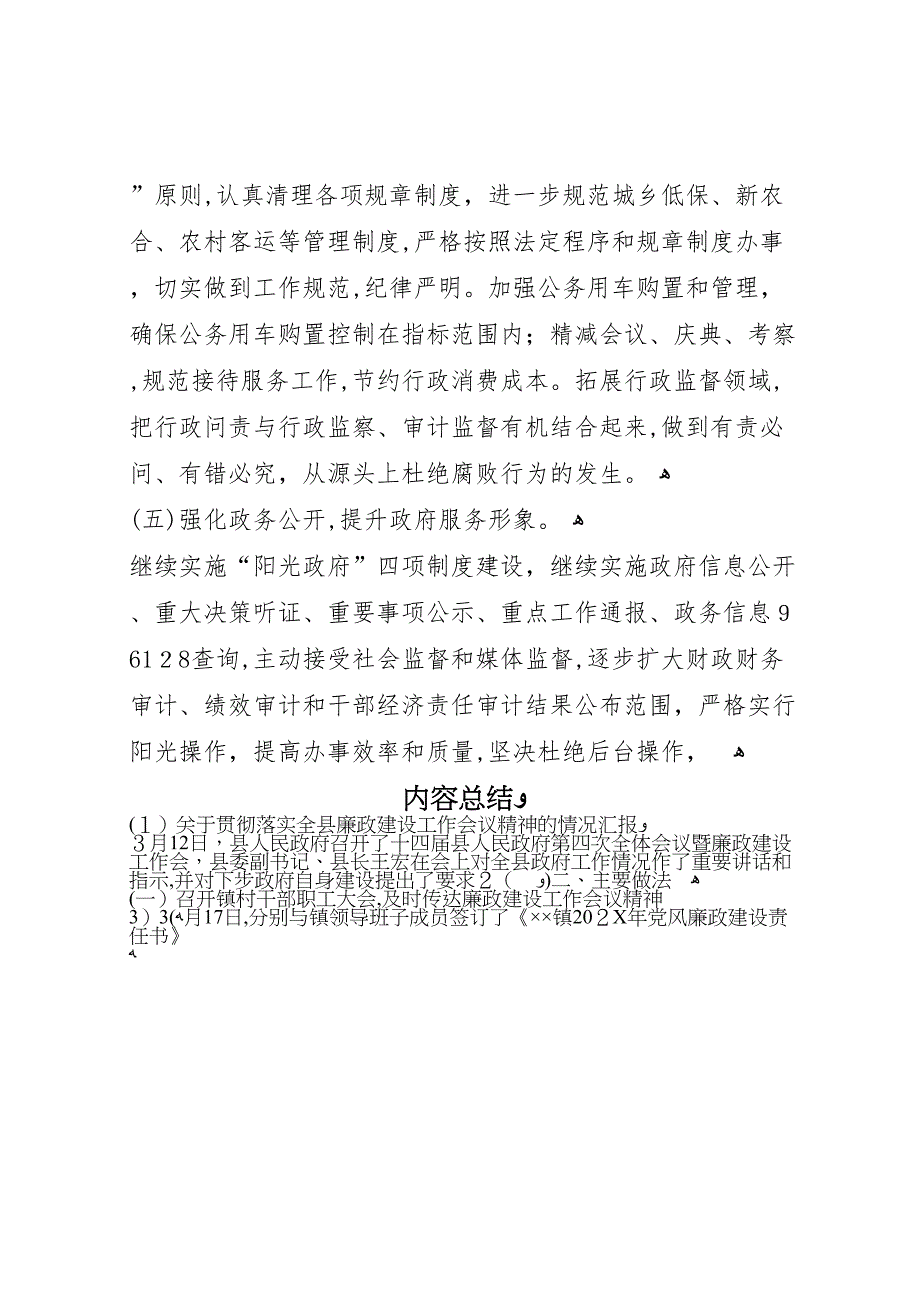 ”原则,认真清理各项规章制度，进一步规范城乡低保、新农
合、农村客运等管理制度,严格按照法定程序和规章制度办事
，切实做到工作规范,纪律严明。加强公务用车购置和管理，
确保公务用车购置控制在指标范围内；精减会议、庆典、考察
,规范接待服务工作,节约行政消费成本。拓展行政监督领域,
把行政问责与行政监察、审计监督有机结合起来,做到有责必
问、有错必究，从源头上杜绝腐败行为的发生。 ﻫ
(五)强化政务公开,提升政府服务形象。 ﻫ
继续实施“阳光政府”四项制度建设，继续实施政府信息公开
、重大决策听证、重要事项公示、重点工作通报、政务信息９
6１２８查询,主动接受社会监督和媒体监督,逐步扩大财政财务
审计、绩效审计和干部经济责任审计结果公布范围，严格实行
阳光操作，提高办事效率和质量,坚决杜绝后台操作， ﻫ
内容总结ﻭ
(１）关于贯彻落实全县廉政建设工作会议精神的情况汇报ﻭ
３月12日，县人民政府召开了十四届县人民政府第四次全体会议暨廉政建设
工作会，县委副书记、县长王宏在会上对全县政府工作情况作了重要讲话和
指示,并对下步政府自身建设提出了要求２（ ﻭ)二、主要做法 ﻫ
(一）召开镇村干部职工大会,及时传达廉政建设工作会议精神
3）3(ﻪ月17日,分别与镇领导班子成员签订了《××镇20２X年党风廉政建设责
任书》
ﻪ